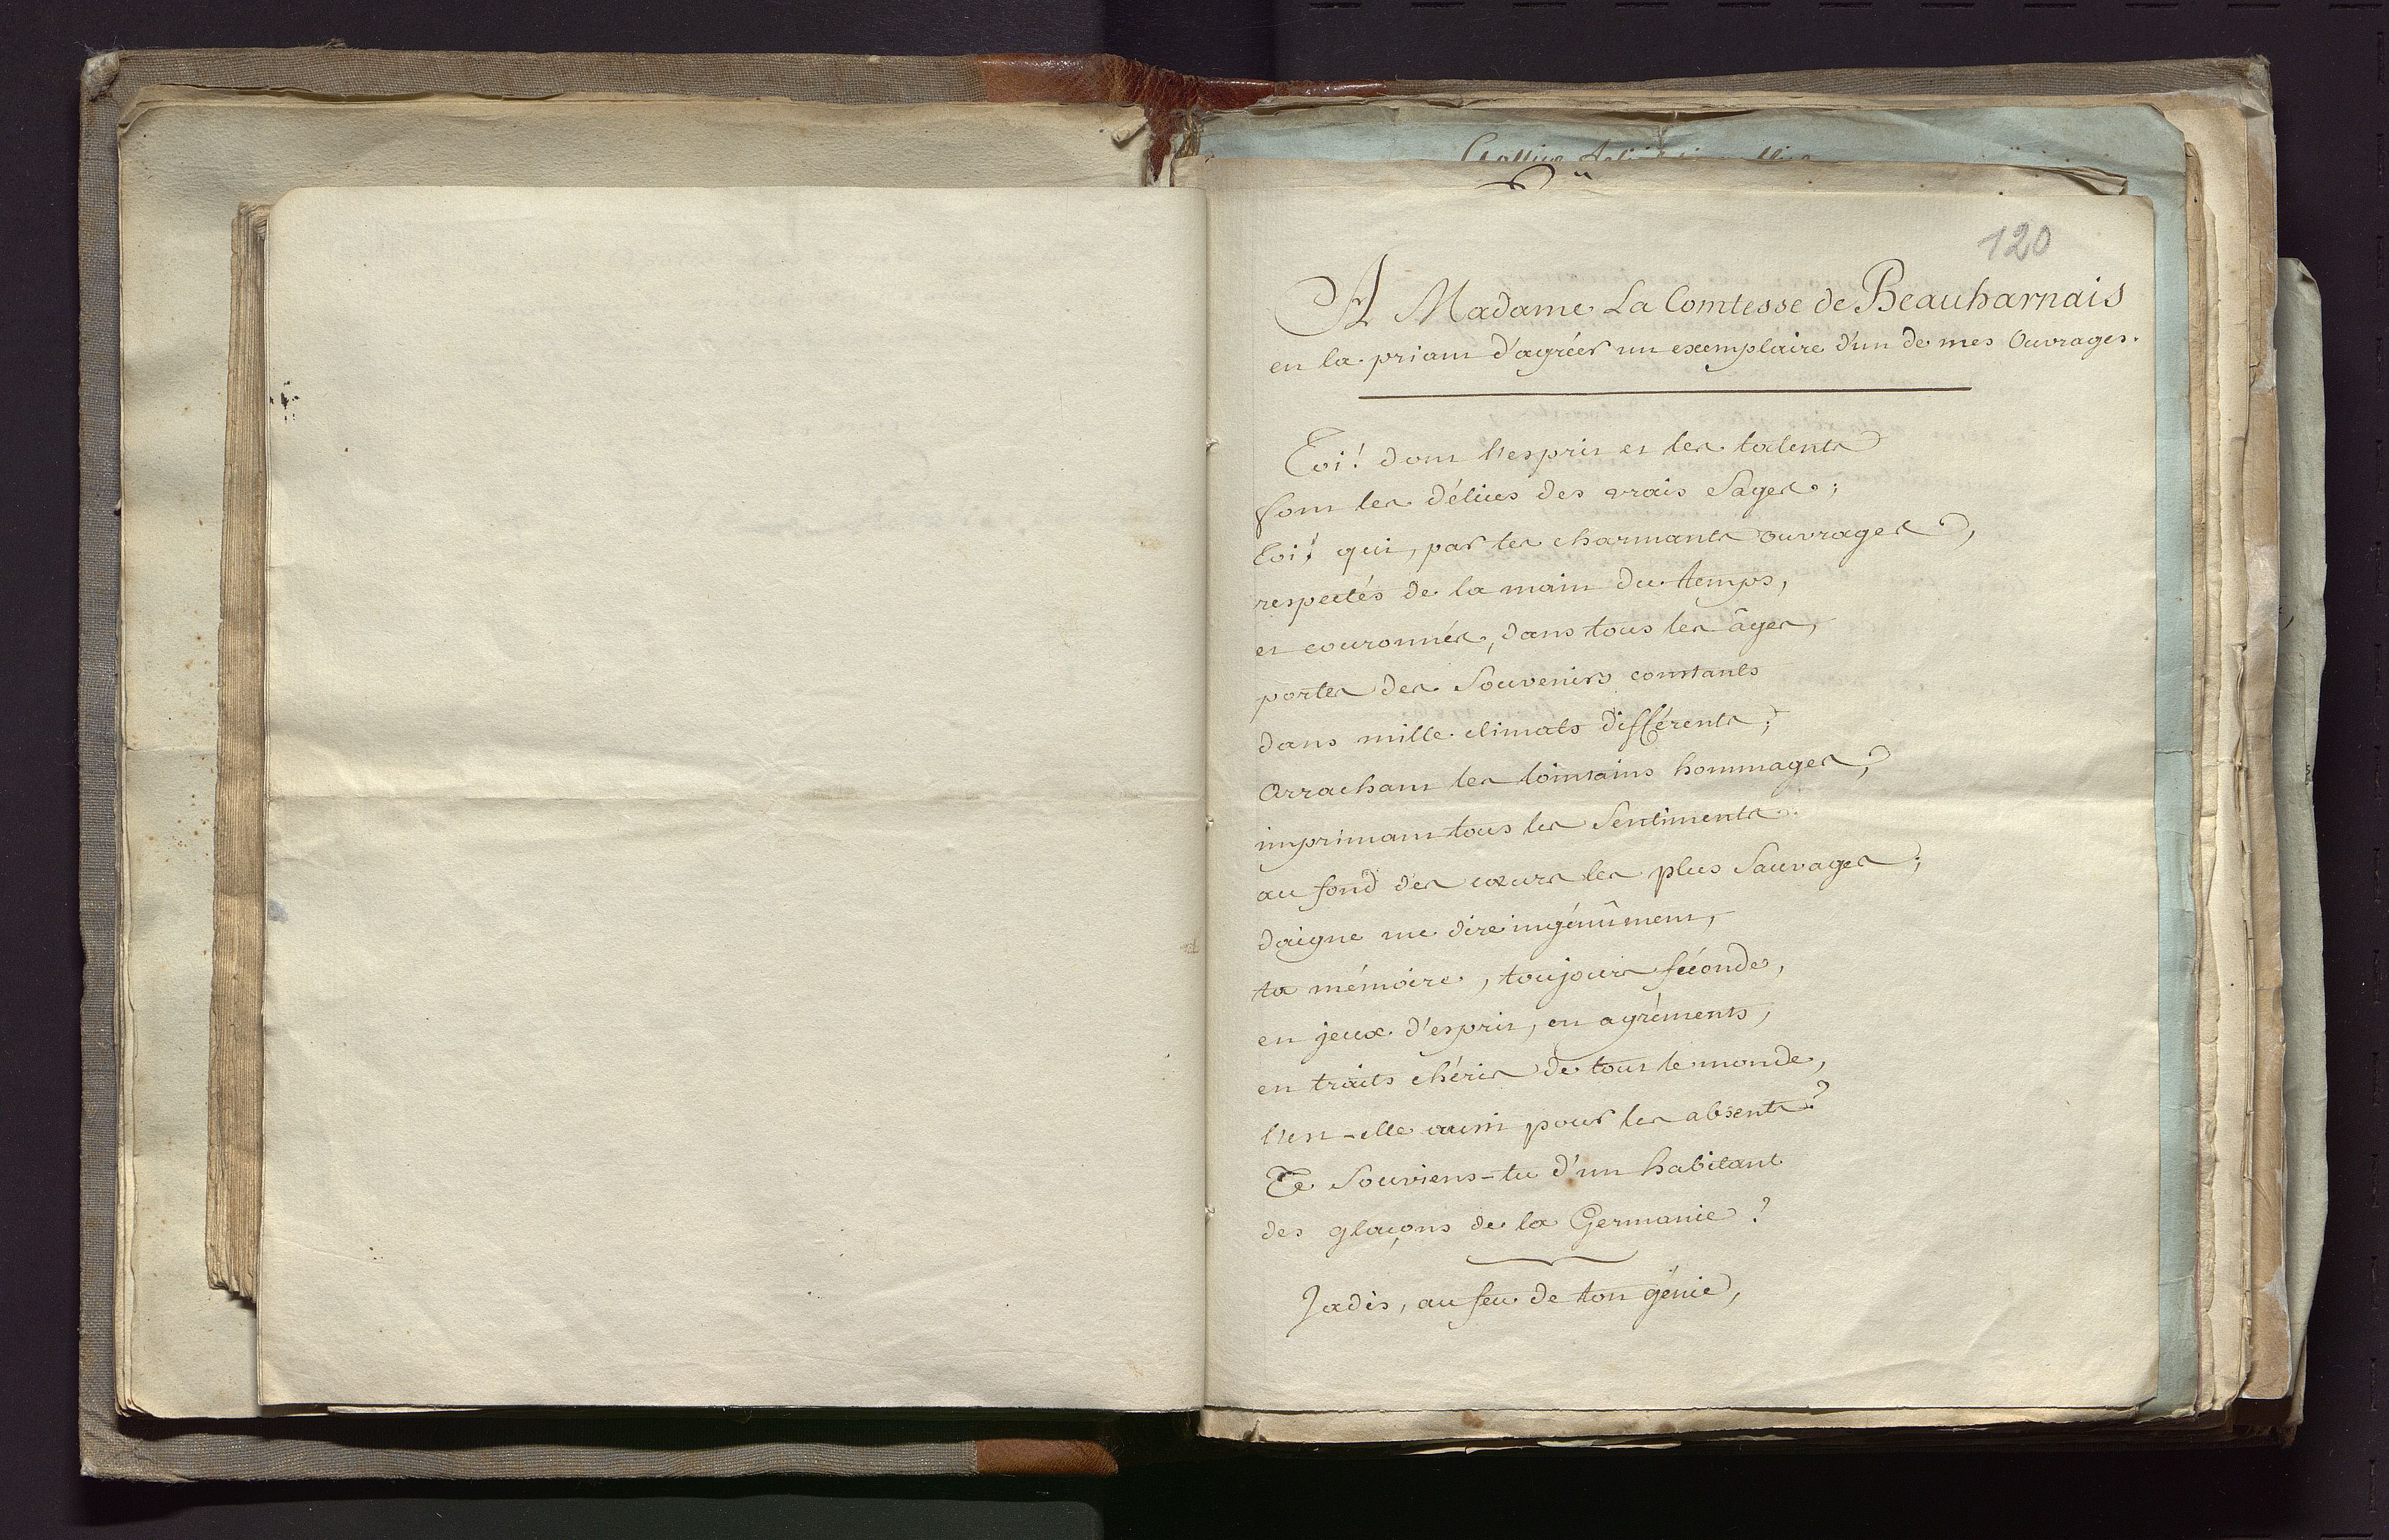 120
A Madame La Comtesse de Beauharnais
en la priant d'agréer un exemplaire d'un de mes Ouvrages.
Toi! dont l'esprit et les talents
sont les délices des vrais Sages;
Toi! qui, par tes charmants ouvrages,
respectés de la main du temps,
et couronnés, dans tous les âges,
portes des Souvenirs constants
dans mille climats différents;
Arrachant les lointains hommages,
imprimant tous les Sentiments
au fond des cœurs les plus Sauvages;
daigne me dire ingénûment,
ta mémoire, toujours féconde,
en jeux d'esprit, en agréments,
en traits chéris de tout le monde,
l'est-elle aussi pour les absents?
Te Souviens-tu d'un habitant
des glaçons de la Germanie?
Jadis, au feu de ton génie,